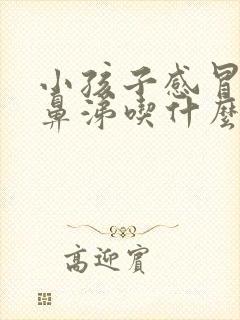 小孩子感冒
鼻涕喫什麼
高迎賓